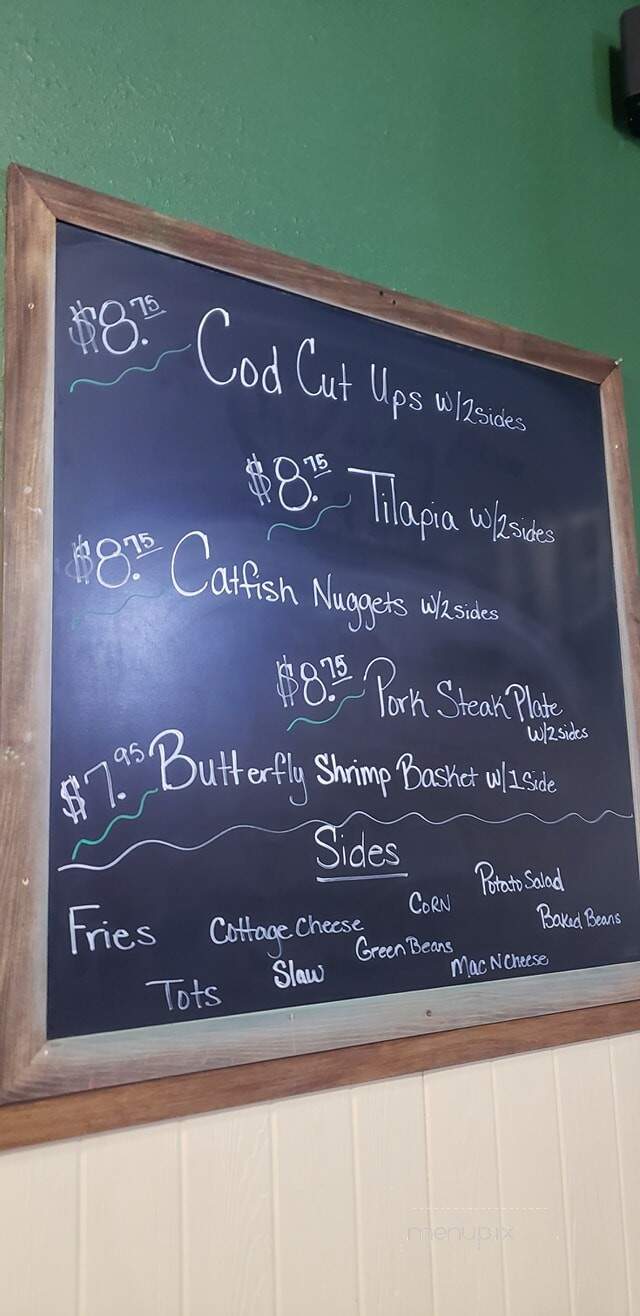 $8.75 Cod Cut Ups w/2sides
$8.75 Tilapia w/2sides
$8.75 Catfish Nuggets w/2sides
$8.75 Pork Steak Plate
w/2sides
$7.95 Butterfly Shrimp Basket w/1Side
Sides
Potato Salad
Fries Cottage Cheese CORN Baked Beans
Green Beans
Tots Slaw Mac N Cheese
menupix